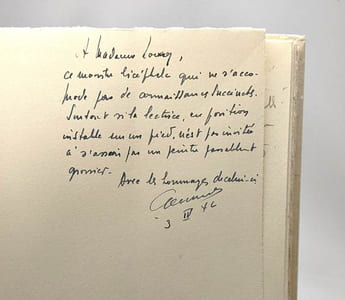 A Madame
ce monstre bicéphale qui ne s'acco-
mode pas de connaissances succinctes.
Surtout si la lectrice, en position
instable sur un pied, n'est pas invitée
à s'asseoir par un peintre passablement
grossier.
Avec les hommages de celui-ci
3 IV